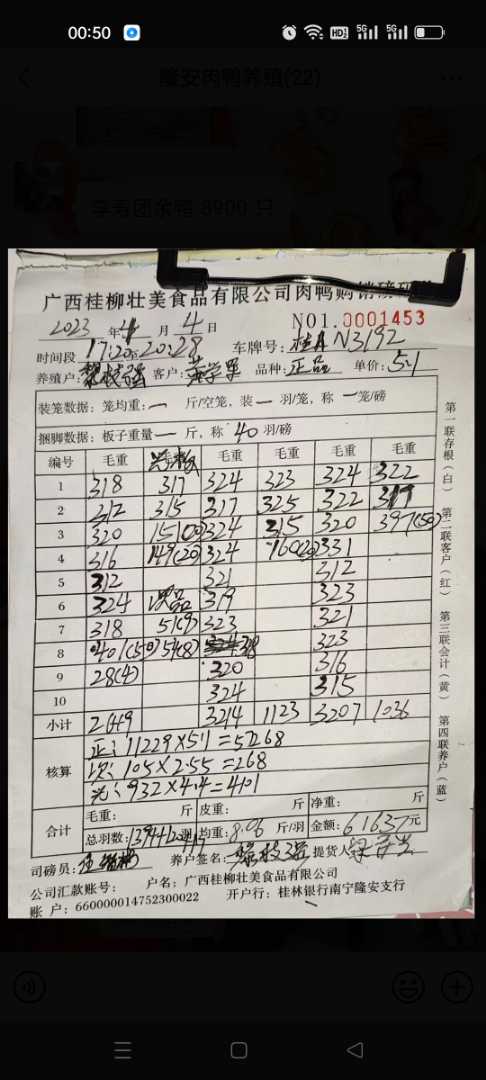 00:50
隆安肉鸭养殖(22)
享寿团余鸭 8900 只
广西桂柳壮美食品有限公司肉鸭购销磅码
2023 年 4 月 4 日 NO1.0001453
时间段 17:20-20:28 车牌号：桂A N3192
养殖户： 客户： 品种：正品 单价：5.1
装笼数据：笼均重：一 斤/空笼，装一 羽/笼，称 一笼/磅
捆脚数据：板子重量一 斤，称 40 羽/磅
编号 毛重 毛重 毛重 毛重 毛重
1 318 317 324 323 324 322
2 312 315 317 325 322 317
3 320 151(20) 324 315 320 397(50)
4 316 149(20) 324 160(20) 331
5 312 321 312
6 324 次品 319 323
7 318 51(9) 323 321
8 401(50) 54(8) 318 323
9 28(4) 320 316
10 324 315
小计 2649 3214 1123 3207 1036
核算
正：11229×5.1=57268
次：105×2.55=268
光：932×4.4=4101
合计
毛重： 斤 皮重： 斤 净重： 斤
总羽数： 羽 均重：8.06 斤/羽 金额：61637元
司磅员： 养户签名： 提货人
公司汇款账号： 户名：广西桂柳壮美食品有限公司
账 户：660000014752300022 开户行：桂林银行南宁隆安支行
第一联存根（白） 第二联客户（红） 第三联会计（黄） 第四联养户（蓝）